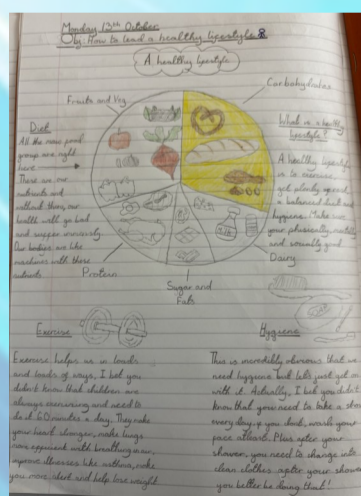 Monday 13th October
Obj: How to lead a healthy lifestyle
A healthy lifestyle
Carbohydrates
Fruits and Veg
Diet
All the main food
group are right
here
These are our
nutrients and
without them, our
health will go bad
and suffer immensely.
Our bodies are like
machines with these
nutrients
What is a healthy
lifestyle?
A healthy lifestyle
is to exercise,
get plenty of
a balanced diet and
hygiene. Make sure
your physically, mentally
and socially good
Dairy
Protein
Sugar and
Fats
Exercise
Exercise helps us in loads
and loads of ways, I bet you
didn't know that children are
always exercising and need to
do it 60 minutes a day. They make
your heart stronger, make lungs
more efficient with breathing
improve illnesses like asthma, make
you more alert and help lose weight
Hygiene
This is incredibly obvious that we
need hygiene but lets just get on
with it. Actually, I bet you didn't
know that you need to take a
every day, if you don't, wash your
face atleast. Plus after your
shower, you need to change into
clean clothes after your shower
you better be doing that!